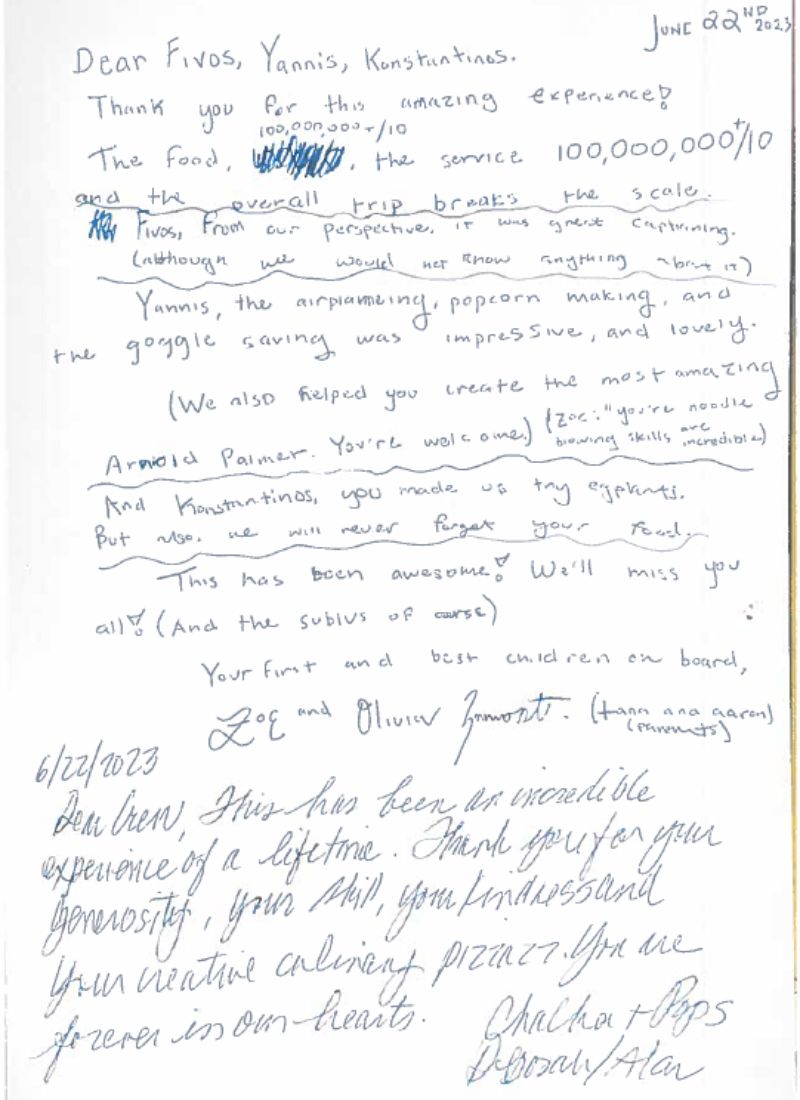 JUNE 22ND 2023
Dear Fivos, Yannis, Konstantinos.
Thank you for this amazing experience!
100,000,000+/10
The food, , the service 100,000,000+/10
and the overall trip breaks the scale.
Fivos, From our perspective, it was great captaining.
(although we would not know anything about it)
Yannis, the airplaneing, popcorn making, and
the goggle saving was impressive, and lovely.
(We also helped you create the most amazing
Arnold Palmer. You're welcome.) (Zoe: "you're noodle
blowing skills are incredible)
And Konstantinos, you made us try egplants.
But also, we will never forget your food.
This has been awesome! We'll miss you
all! (And the subius of course)
Your first and best children on board,
Zoe and Olivier (Hana and aaron)
(parents)
6/22/2023
Dear Crew, This has been an incredible
experience of a lifetime. Thank you for your
generosity, your skill, your kindness and
your creative culinary pizzazz. You are
forever in our hearts.
ChaCha + Pops
Deborah/Alan